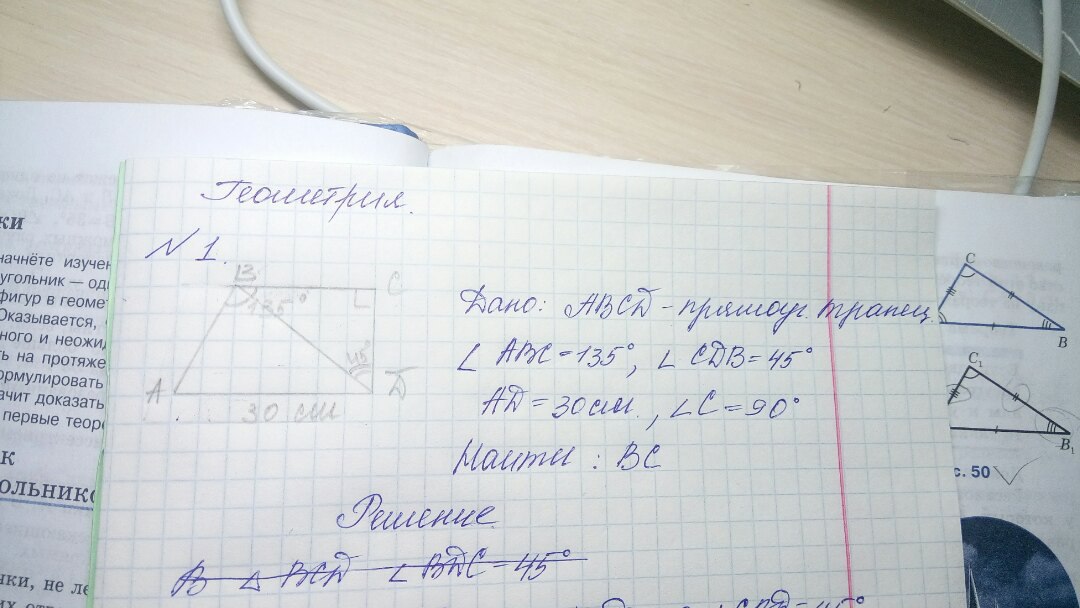 Геометрия.
N 1.
B
135°
C
45°
A
D
30 см
Дано: ABCD - прямоуг. трапец.
∠ ABC = 135°, ∠ CDB = 45°
AD = 30 см., ∠C = 90°
Найти : BC
Решение
В △ BCD ∠ BDC = 45°
ки
начнёте
угольник — од
Оказывается,
ного и неожи
ть на протяже
ормулировать
ачит доказать
первые теор
к
ольник
чки, не
C
B
C₁
B₁
с. 50